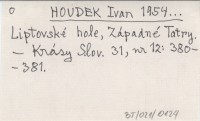 o HOUDEK Ivan 1954...
Liptovské hole, Západné Tatry.
— Krásy Slov. 31, nr 12: 380-
- 381.
BT/021/0129